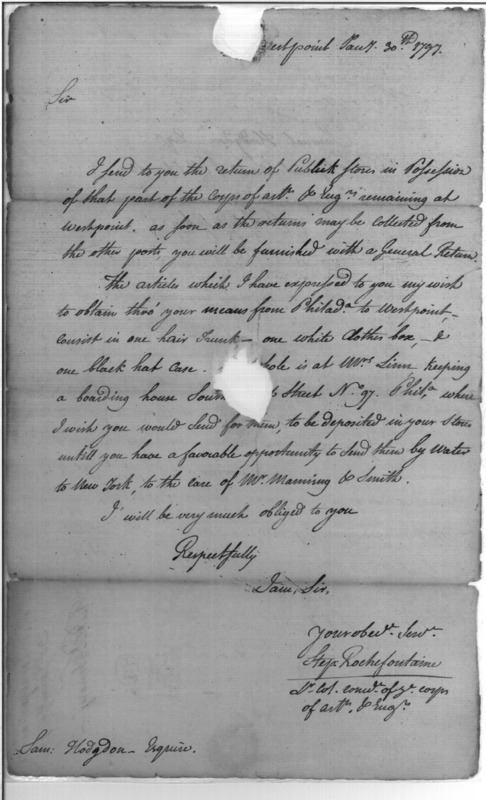 estpoint Jany. 30th 1797.
Sir
I send to you the return of Publick Stores in Possession
of that part of the Corps of arty. & Engrs. remaining at
Westpoint. as soon as the returns may be collected from
the other posts, you will be furnished with a General Return
The articles which I have expressed to you my wish
to obtain thro' your means from Philada. to Westpoint,
consist in one hair Trunk — one white Clothes box, — &
one black hat Case. hole is at Mrs. Linn keeping
a boarding house South Street No. 97. Phila. where
I wish you would Send for them, to be deposited in your Stores
untill you have a favorable opportunity to Send them by Water
to New York, to the care of Mr. Manning & Smith.
I will be very much obliged to you
Respectfully
I am, Sir,
Your obedt. Servt.
Step. Rochefontaine
Lt. Col. comdt. of ye. corps
of arty. & Engrs.
Sam: Hodgdon — Esquire.